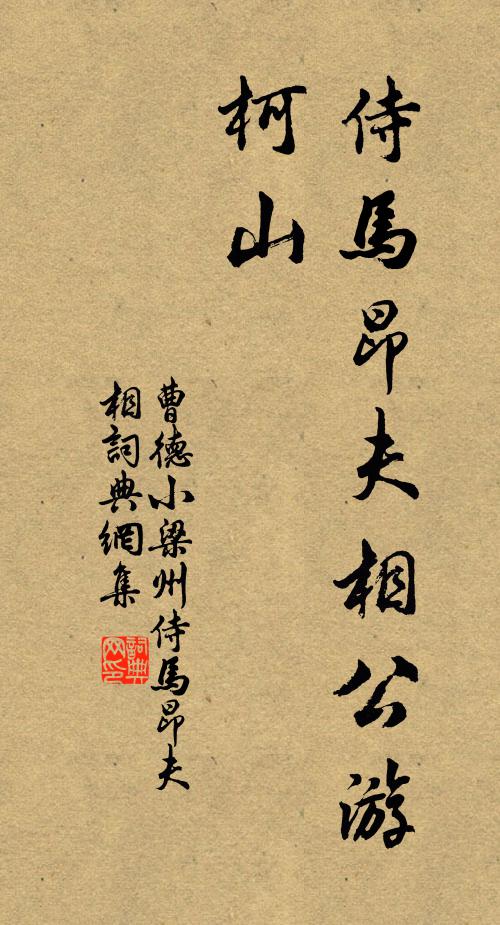 侍馬昂夫相公游
柯山
曹德小梁州侍馬昂夫
相詞典網集
詞典
网印